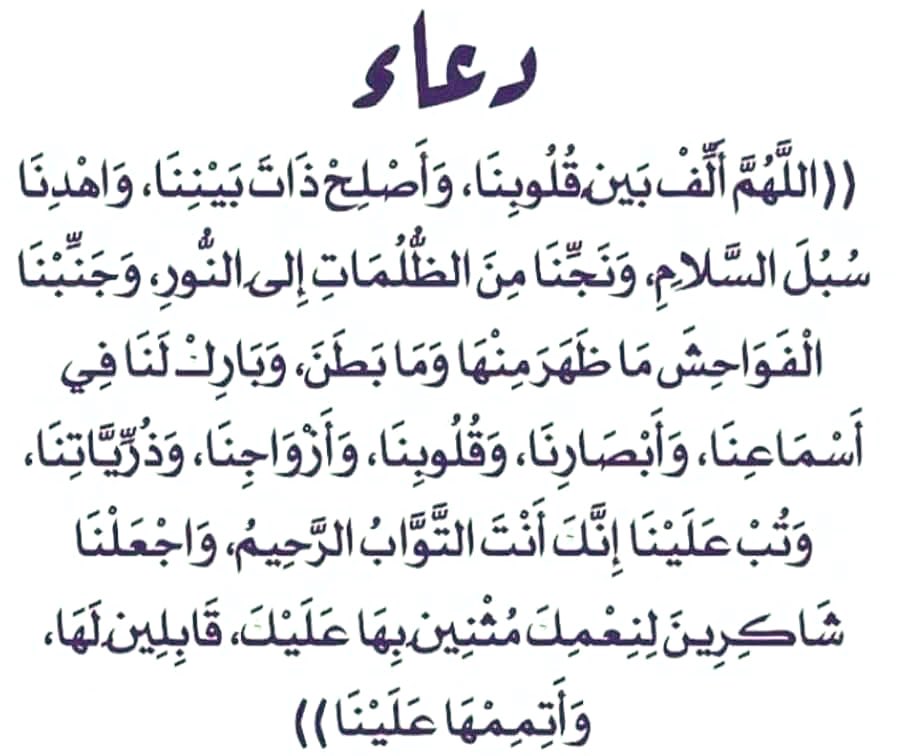 دعاء
((اللَّهُمَّ أَلِّفْ بَيْنَ قُلُوبِنَا، وَأَصْلِحْ ذَاتَ بَيْنِنَا، وَاهْدِنَا
سُبُلَ السَّلَامِ، وَنَجِّنَا مِنَ الظُّلُمَاتِ إِلى النُّورِ، وَجَنِّبْنَا
الْفَوَاحِشَ مَا ظَهَرَ مِنْهَا وَمَا بَطَنَ، وَبَارِكْ لَنَا فِي
أَسْمَاعِنَا، وَأَبْصَارِنَا، وَقُلُوبِنَا، وَأَزْوَاجِنَا، وَذُرِّيَّاتِنَا،
وَتُبْ عَلَيْنَا إِنَّكَ أَنْتَ التَّوَّابُ الرَّحِيمُ، وَاجْعَلْنَا
شَاكِرِينَ لِنِعْمِكَ مُثْنِين بِهَا عَلَيْكَ، قَابِلِين لَهَا،
وَأَتِمِمْهَا عَلَيْنَا))